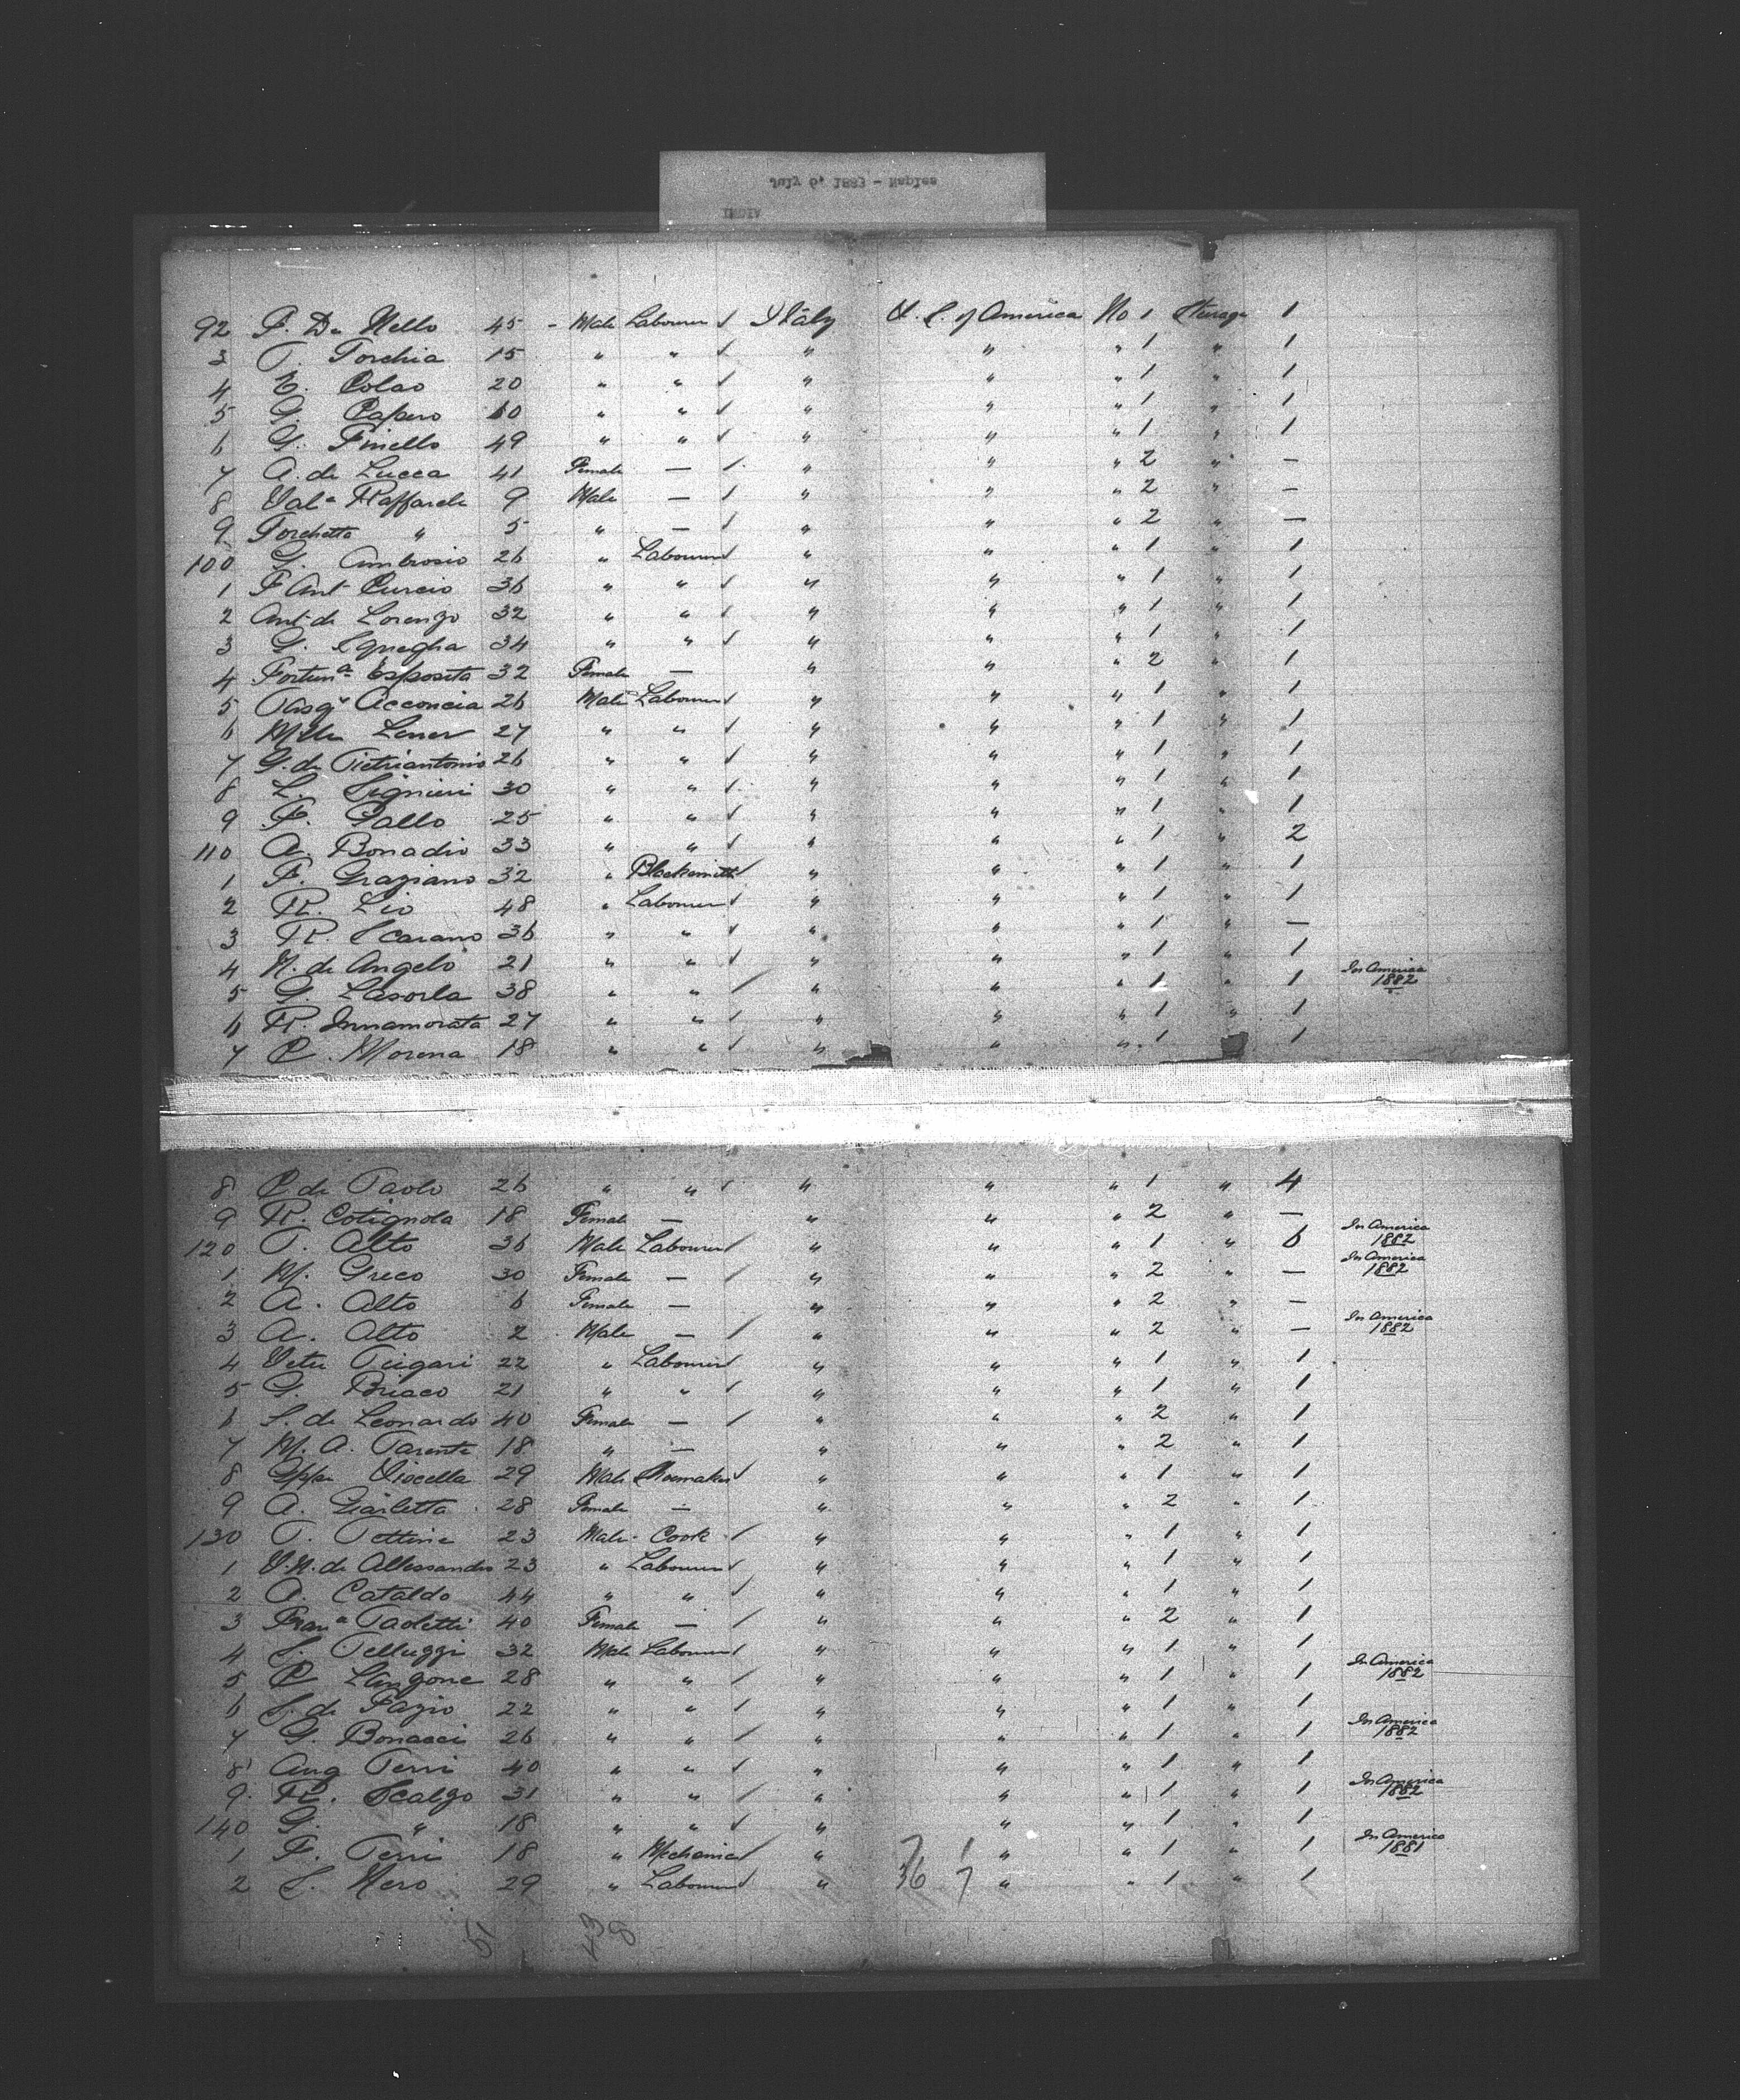 July 6, 1883 - Naples
INDIA
92 F. De Nello 45 - Male Labourer ✓ Italy U. S. of America No 1 Steerage 1
3 P. Porchia 15 " " ✓ " " " 1 " 1
4 E. Colao 20 " " ✓ " " " 1 " 1
5 G. Capero 60 " " ✓ " " " 1 " 1
6 G. Finello 49 " " ✓ " " " 1 " 1
7 A. de Lucca 41 Female — ✓ " " " 2 " —
8 Val.a Raffaele 9 Male — ✓ " " " 2 " —
9 Porchetta " 5 " — ✓ " " " 2 " —
100 G. Ambrosio 26 " Labourer ✓ " " " 1 " 1
1 F Ant Curcio 36 " " ✓ " " " 1 " 1
2 Ant. de Lorenzo 32 " " ✓ " " " 1 " 1
3 G. 34 " " ✓ " " " 1 " 1
4 Fortun.a Esposita 32 Female — " " " 2 " 1
5 Pasq.e Acconcia 26 Male Labourer ✓ " " " 1 " 1
6 Lener 27 " " ✓ " " " 1 " 1
7 G. de Pietriantonio 26 " " ✓ " " " 1 " 1
8 L. Signieri 30 " " ✓ " " " 1 " 1
9 F. Gallo 25 " " ✓ " " " 1 " 1
110 A. Bonadio 33 " " ✓ " " " 1 " 2
1 F. Graziano 32 " Blacksmith ✓ " " " 1 " 1
2 R. Lio 48 " Labourer ✓ " " " 1 " 1
3 R. Scarano 36 " " ✓ " " " 1 " —
4 N. de Angelo 21 " " ✓ " " " 1 " 1
5 G. Lasorla 38 " " / " " " 1 " 1 In America 1882
6 R. Innamorata 27 " " ✓ " " " 1 " 1
7 C. Morena 18 " " ✓ " " " 1 " 1
8 C. de Paolo 26 " " ✓ " " " 1 " 4
9 R. Cotignola 18 Female — " " " 2 " —
120 P. Alto 36 Male Labourer / " " " 1 " 6 In America 1882
1 M. Greco 30 Female — / " " " 2 " — In America 1882
2 A. Alto 6 Female — " " " 2 " —
3 A. Alto 2 Male — / " " " 2 " — In America 1882
4 Vetu Pirgari 22 " Labourer ✓ " " " 1 " 1
5 G. Briaco 21 " " ✓ " " " 1 " 1
6 S. de Leonardo 40 Female — / " " " 2 " 1
7 M. A. Parente 18 " — " " " 2 " 1
8 Gppe Viocella 29 Male Shoemaker ✓ " " " 1 " 1
9 A. Giarletta 28 Female — " " " 2 " 1
130 P. Pettine 23 Male - Cook ✓ " " " 1 " 1
1 V. N. de Allessandro 23 " Labourer ✓ " " " 1 " 1
2 A. Cataldo 44 " " ✓ " " " 1 " 1
3 Fran.a Paoletti 40 Female — / " " " 2 " 1
4 S. Pelluzzi 32 Male Labourer / " " " 1 " 1
5 C Langone 28 " " / " " " 1 " 1 In America 1882
6 S. de Fazio 22 " " / " " " 1 " 1
7 G. Bonacci 26 " " / " " " 1 " 1 In America 1882
8 Aug Perri 40 " " ✓ " " " 1 " 1
9 R. Scalzo 31 " " / " " " 1 " 1 In America 1882
140 G. " 18 " " ✓ " " " 1 " 1
1 F. Perri 18 " Mechanic / " " " 1 " 1 In America 1881
2 S. Nero 29 " Labourer ✓ " " " 1 " 1
7 1
36 7
51 43
8